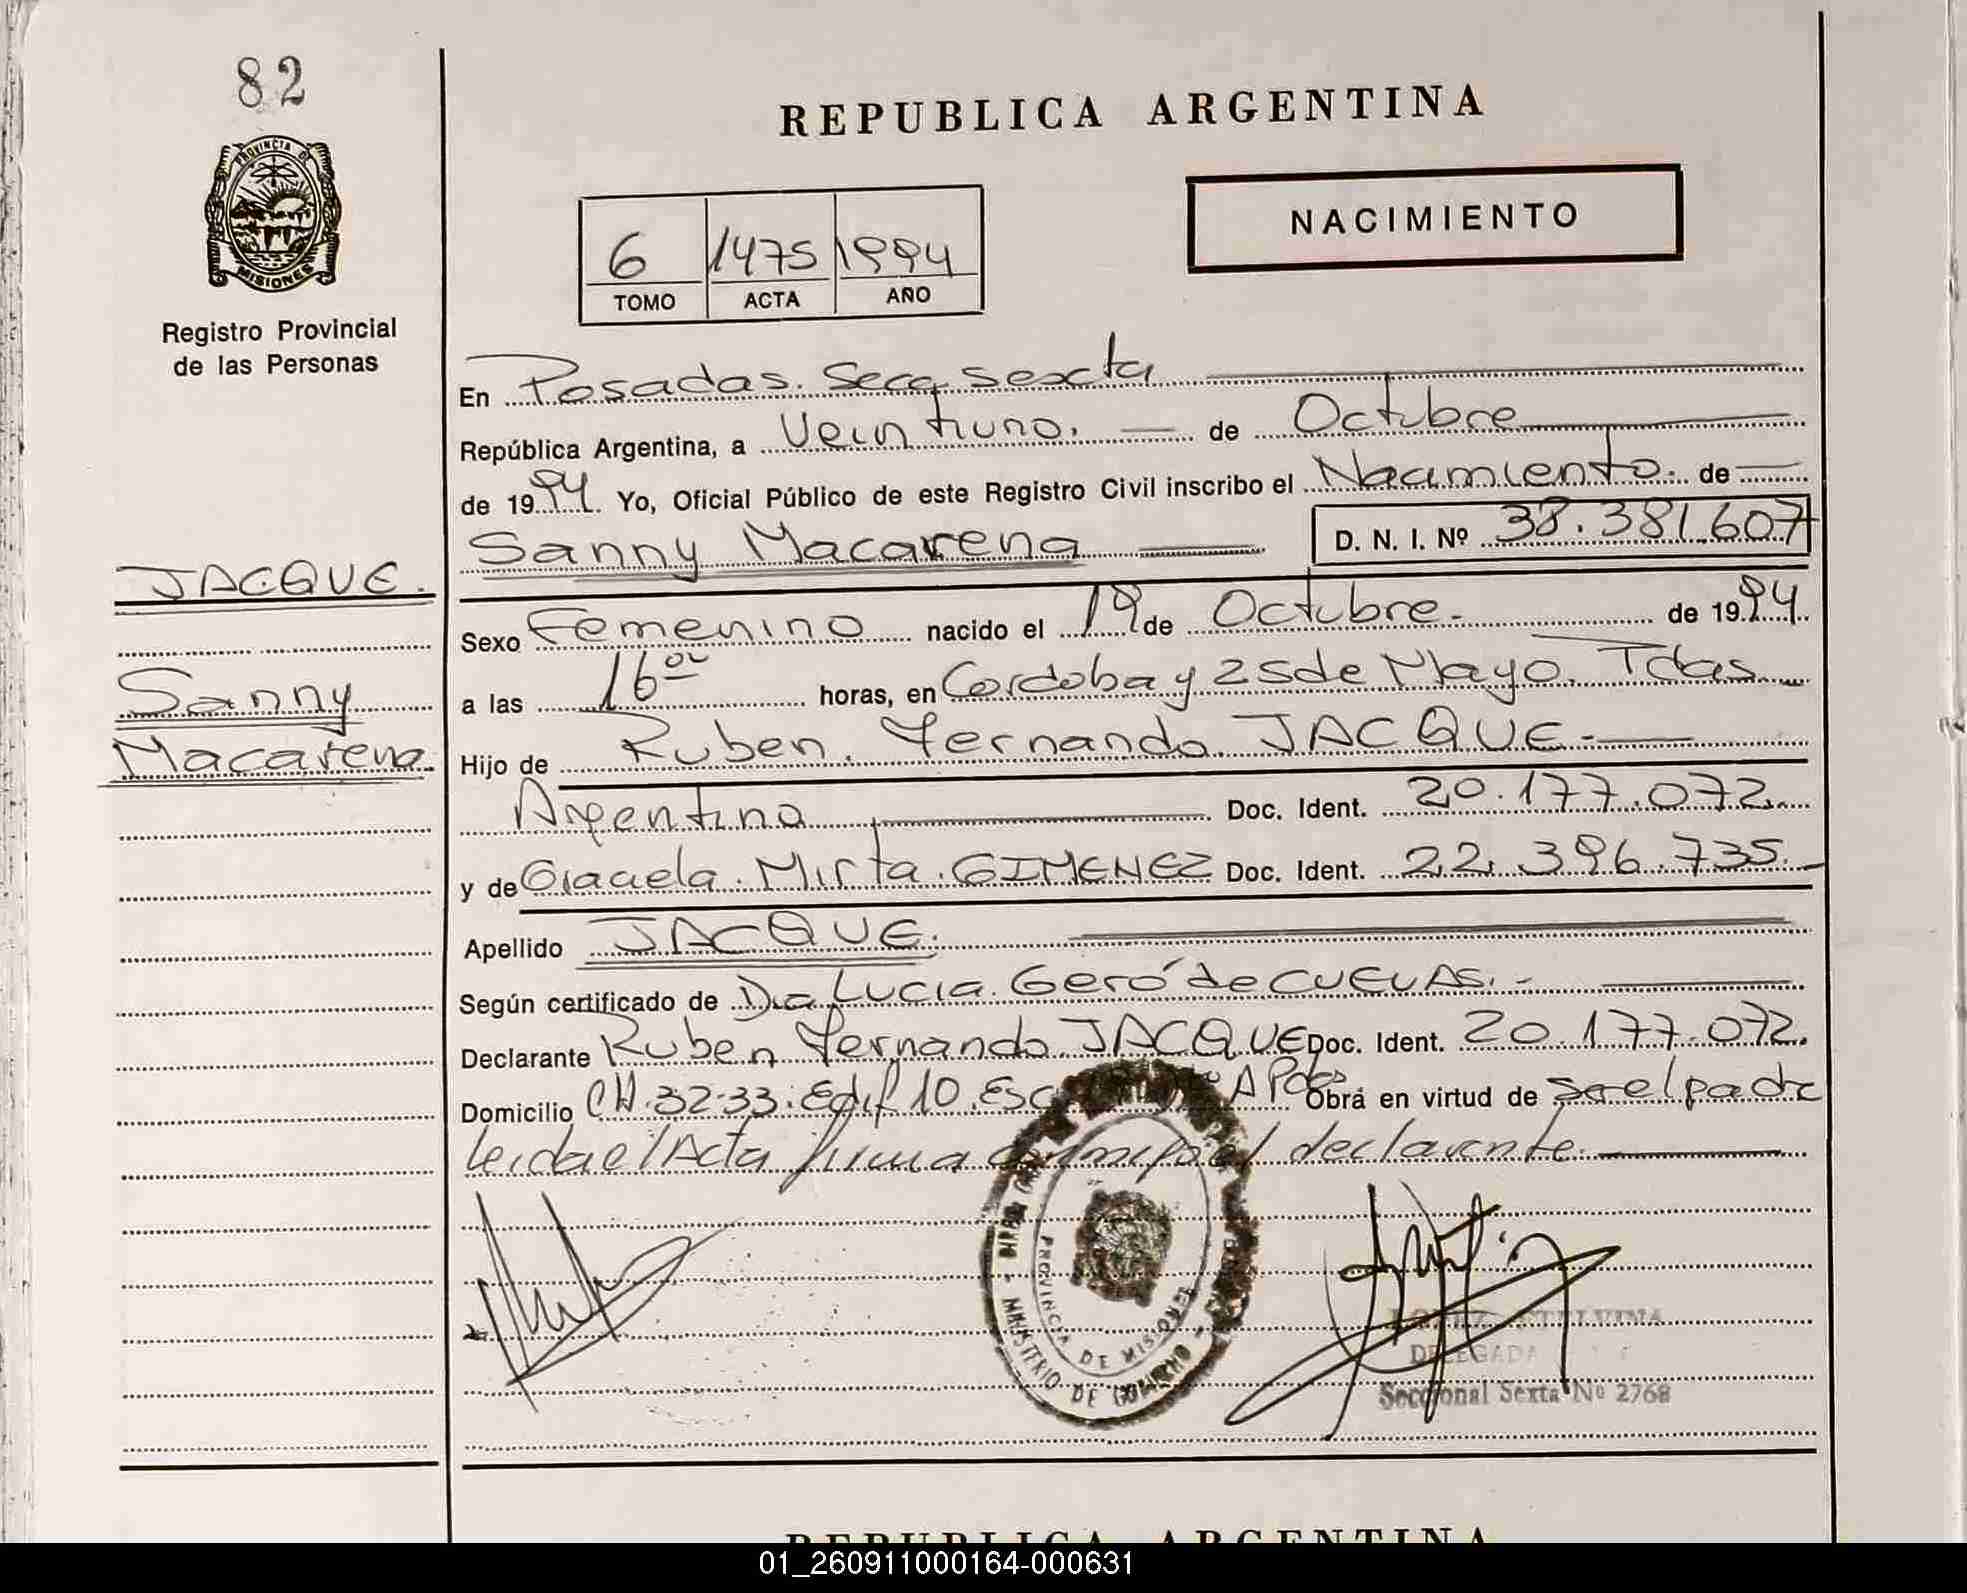 82
REPUBLICA ARGENTINA
PROVINCIA DE
MISIONES
NACIMIENTO
6 1475 1994
TOMO ACTA AÑO
Registro Provincial
de las Personas
En Posadas. Secc sexta
República Argentina, a Veintiuno. de Octubre
de 1994. Yo, Oficial Público de este Registro Civil inscribo el Nacimiento. de
Sanny Macarena D. N. I. Nº 38.381.607
JACQUE.
Sexo Femenino nacido el 19 de Octubre. de 1994.
Sanny
a las 16ºº horas, en Cordoba y 25 de Mayo. Pdas
Macarena.
Hijo de Ruben. Fernando. JACQUE.-
Argentino Doc. Ident. 20.177.072.
y de Graciela. Mirta. GIMENEZ Doc. Ident. 22.396.735.
Apellido JACQUE.
Según certificado de Dra Lucia. Geró de CUEVAS.-
Declarante Ruben Fernando. JACQUE Doc. Ident. 20.177.072.
Domicilio CH.32-33. Edif 10. Esc A Pdas Obrá en virtud de ser el padre
leida el Acta firma el declarante.
PROVINCIA DE MISIONES
MINISTERIO DE GOBIERNO
LOPEZ ETELVINA
DELEGADA
Seccional Sexta Nº 2768
REPUBLICA ARGENTINA
01_260911000164-000631